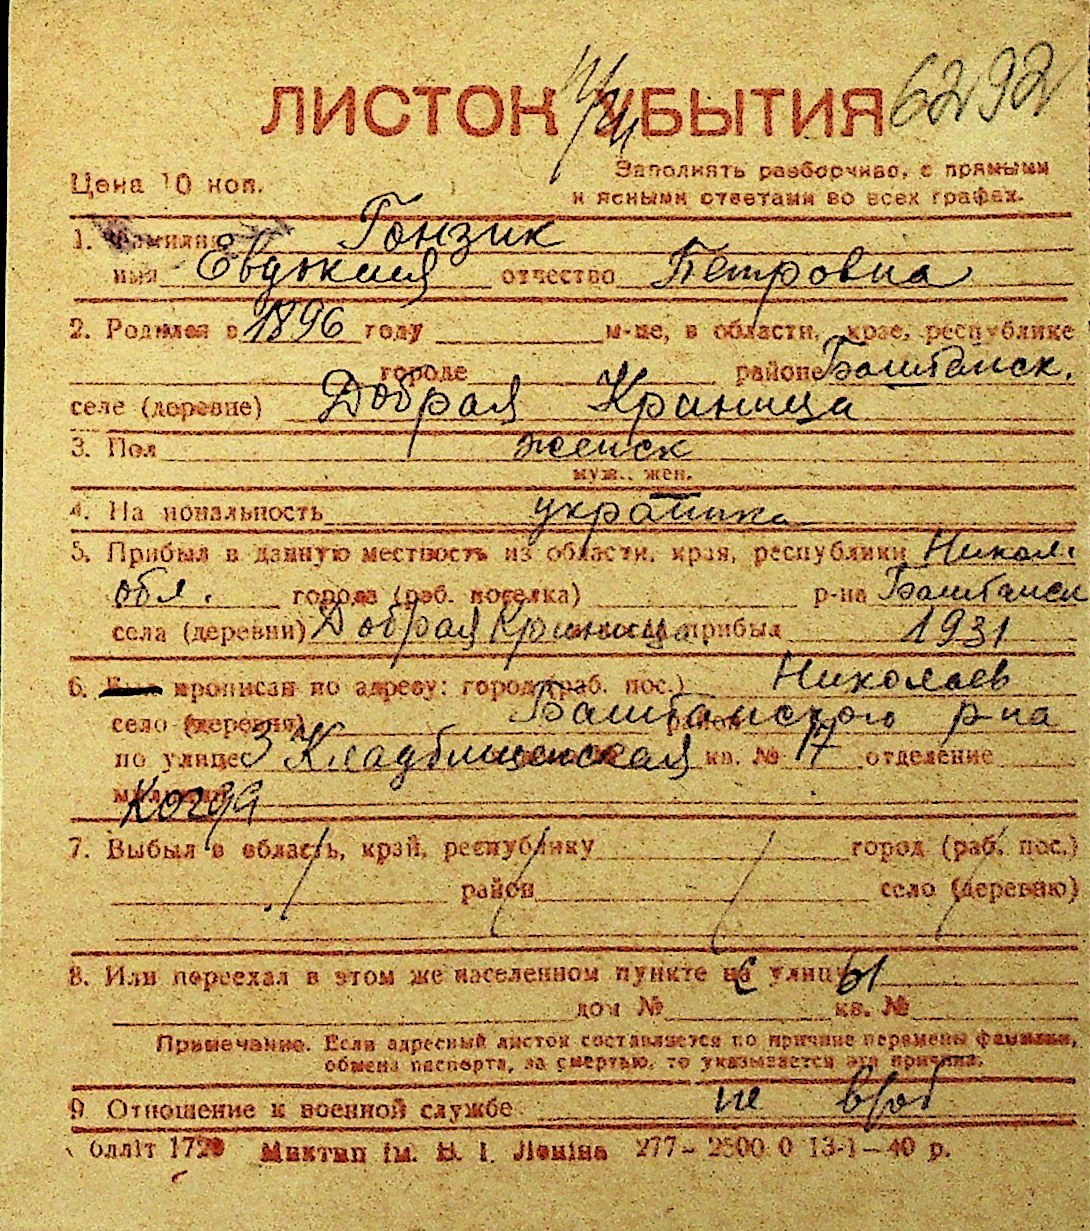 ЛИСТОК УБЫТИЯ 6292
Цена 10 коп.
Заполнять разборчиво, с прямыми
и ясными ответами во всех графах.
1. Фамилия Гонзик
имя Евдокия отчество Петровна
2. Родился в 1896 году м-це, в области, крае, республике
городе районе Баштанск.
селе (деревне) Добрая Криница
3. Пол женск
муж., жен.
4. Национальность украинка
5. Прибыл в данную местность из области, края, республики Никол.
обл. города (раб. поселка) р-на Баштанск
села (деревни) Добрая Криница прибыл 1931
6. Был прописан по адресу: город (раб. пос.) Николаев
село (деревня) район Баштанского р-на
по улице 3 Кладбищенская кв. № 17 отделение
когда
7. Выбыл в область, край, республику город (раб. пос.)
район село (деревню)
8. Или переехал в этом же населенном пункте на улицу
дом № кв. №
Примечание. Если адресный листок составляется по причине перемены фамилии,
обмена паспорта, за смертью, то указывается эта причина.
9. Отношение к военной службе не в/об
Облліт 1720 Миктип ім. В. І. Леніна 277—2500.0 13-1—40 р.